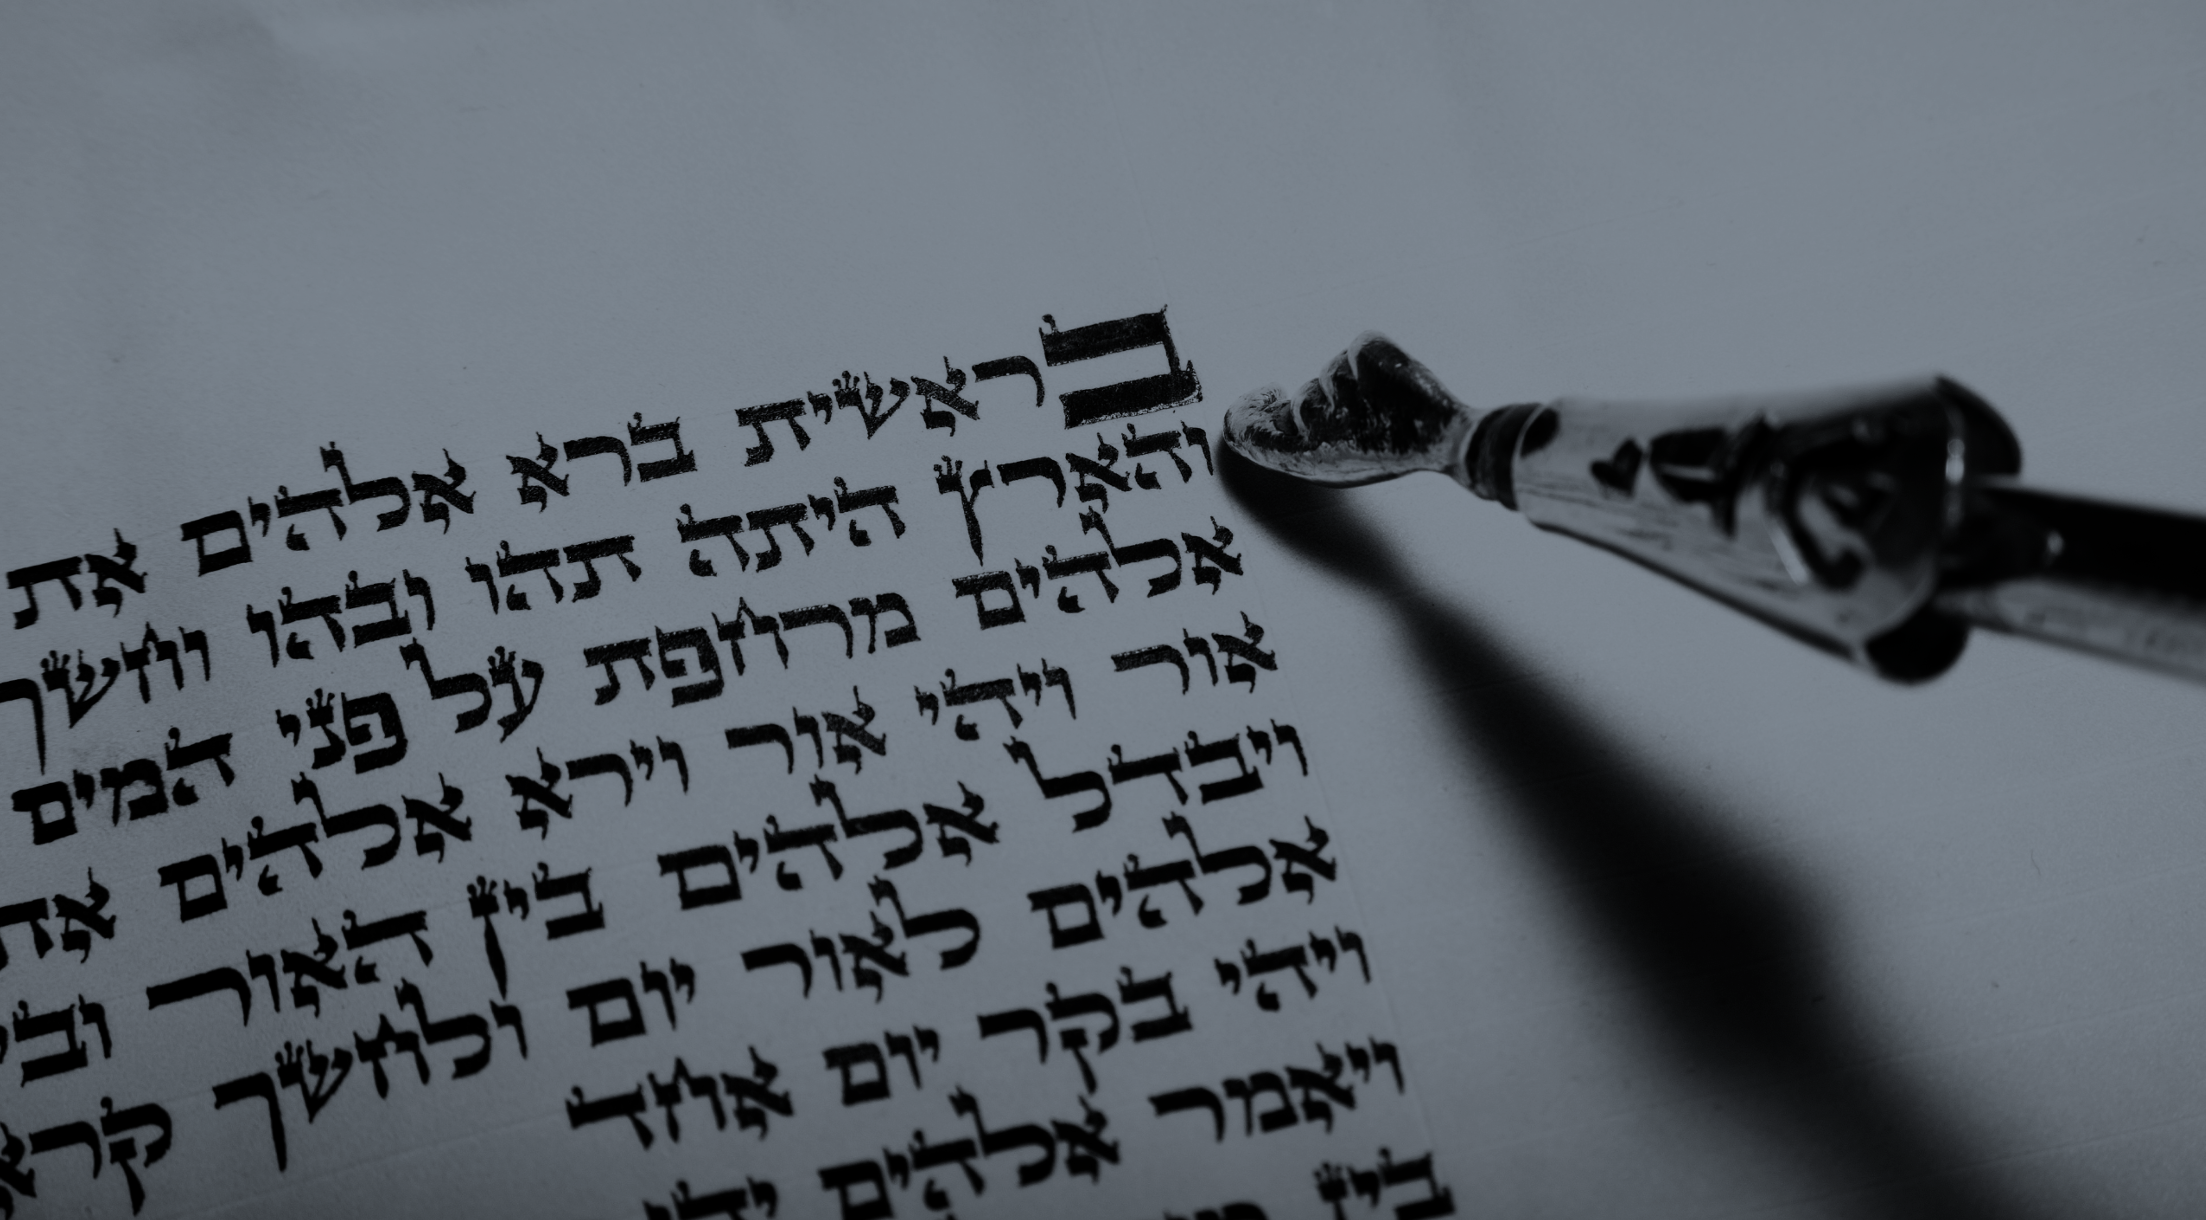 בראשית ברא אלהים את
והארץ היתה תהו ובהו וחשך
אלהים מרחפת על פני המים
אור ויהי אור וירא אלהים את
ויבדל אלהים בין האור
אלהים לאור יום ולחשך קרא
ויהי בקר יום אחד
ויאמר אלהים יהי
בין